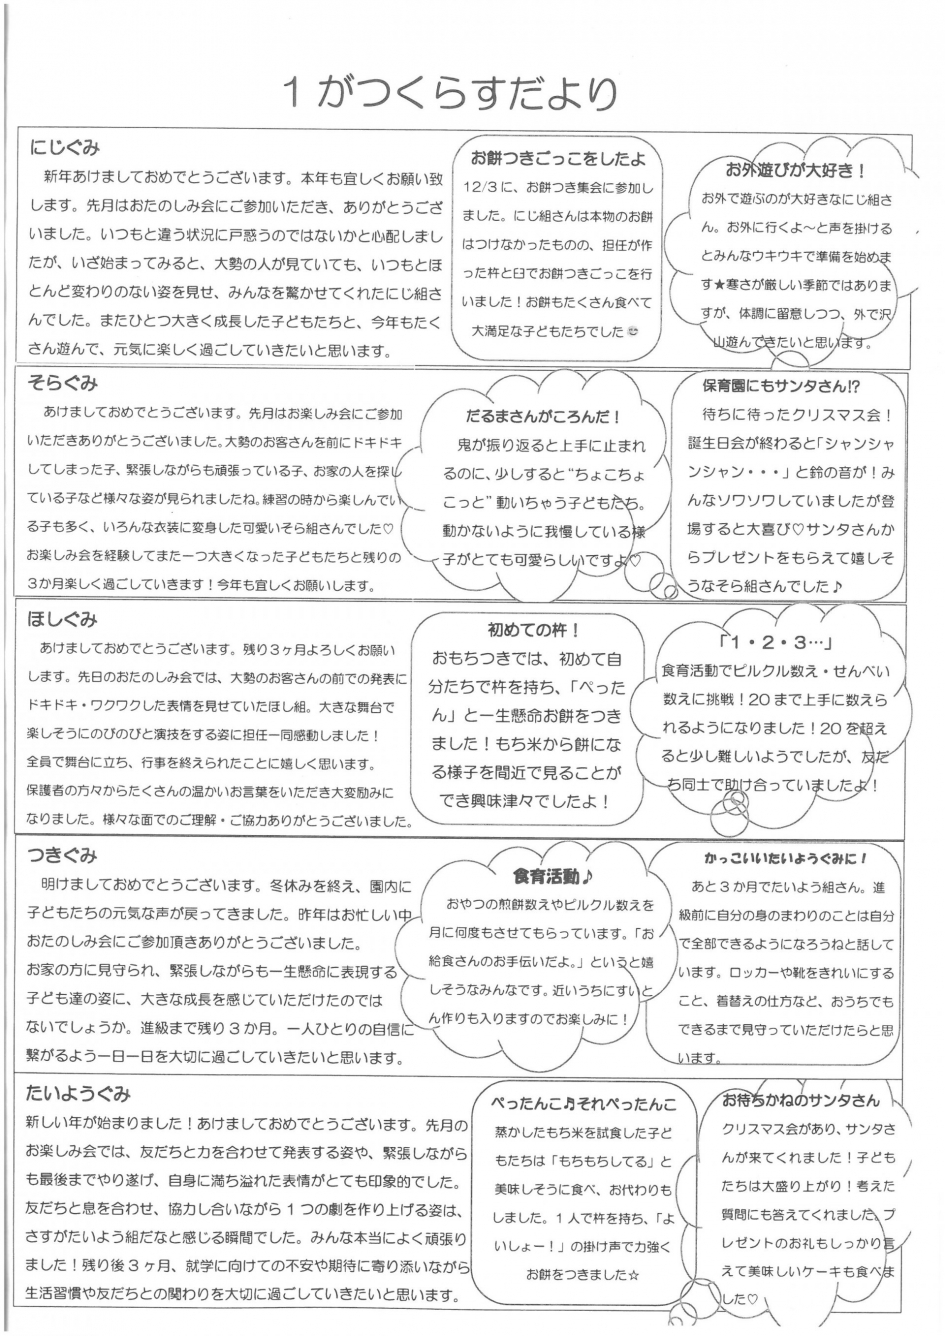 1がつくらすだより
にじぐみ
新年あけましておめでとうございます。本年も宜しくお願い致
します。先月はおたのしみ会にご参加いただき、ありがとうござ
いました。いつもと違う状況に戸惑うのではないかと心配しまし
たが、いざ始まってみると、大勢の人が見ていても、いつもとほ
とんど変わりのない姿を見せ、みんなを驚かせてくれたにじ組さ
んでした。またひとつ大きく成長した子どもたちと、今年もたく
さん遊んで、元気に楽しく過ごしていきたいと思います。
お餅つきごっこをしたよ
12/3に、お餅つき集会に参加し
ました。にじ組さんは本物のお餅
はつけなかったものの、担任が作
った杵と臼でお餅つきごっこを行
いました！お餅もたくさん食べて
大満足な子どもたちでした☺
お外遊びが大好き！
お外で遊ぶのが大好きなにじ組さ
ん。お外に行くよ～と声を掛ける
とみんなウキウキで準備を始めま
す★寒さが厳しい季節ではありま
すが、体調に留意しつつ、外で沢
山遊んできたいと思います。
そらぐみ
あけましておめでとうございます。先月はお楽しみ会にご参加
いただきありがとうございました。大勢のお客さんを前にドキドキ
してしまった子、緊張しながらも頑張っている子、お家の人を探し
ている子など様々な姿が見られましたね。練習の時から楽しんでい
る子も多く、いろんな衣装に変身した可愛いそら組さんでした♡
お楽しみ会を経験してまた一つ大きくなった子どもたちと残りの
3か月楽しく過ごしていきます！今年も宜しくお願いします。
だるまさんがころんだ！
鬼が振り返ると上手に止まれ
るのに、少しすると“ちょこちょ
こっと”動いちゃう子どもたち。
動かないように我慢している様
子がとても可愛らしいですよ♡
保育園にもサンタさん!?
待ちに待ったクリスマス会！
誕生日会が終わると「シャンシャ
ンシャン・・・」と鈴の音が！み
んなソワソワしていましたが登
場すると大喜び♡サンタさんか
らプレゼントをもらえて嬉しそ
うなそら組さんでした♪
ほしぐみ
あけましておめでとうございます。残り3ヶ月よろしくお願い
します。先日のおたのしみ会では、大勢のお客さんの前での発表に
ドキドキ・ワクワクした表情を見せていたほし組。大きな舞台で
楽しそうにのびのびと演技をする姿に担任一同感動しました！
全員で舞台に立ち、行事を終えられたことに嬉しく思います。
保護者の方々からたくさんの温かいお言葉をいただき大変励みに
なりました。様々な面でのご理解・ご協力ありがとうございました。
初めての杵！
おもちつきでは、初めて自
分たちで杵を持ち、「ぺった
ん」と一生懸命お餅をつき
ました！もち米から餅にな
る様子を間近で見ることが
でき興味津々でしたよ！
「1・2・3…」
食育活動でピルクル数え・せんべい
数えに挑戦！20まで上手に数えら
れるようになりました！20を超え
ると少し難しいようでしたが、友だ
ち同士で助け合っていましたよ！
つきぐみ
明けましておめでとうございます。冬休みを終え、園内に
子どもたちの元気な声が戻ってきました。昨年はお忙しい中
おたのしみ会にご参加頂きありがとうございました。
お家の方に見守られ、緊張しながらも一生懸命に表現する
子ども達の姿に、大きな成長を感じていただけたのでは
ないでしょうか。進級まで残り3か月。一人ひとりの自信に
繋がるよう一日一日を大切に過ごしていきたいと思います。
食育活動♪
おやつの煎餅数えやピルクル数えを
月に何度もさせてもらっています。「お
給食さんのお手伝いだよ。」というと嬉
しそうなみんなです。近いうちにすいと
ん作りも入りますのでお楽しみに！
かっこいいたいようぐみに！
あと3か月でたいよう組さん。進
級前に自分の身のまわりのことは自分
で全部できるようになろうねと話して
います。ロッカーや靴をきれいにする
こと、着替えの仕方など、おうちでも
できるまで見守っていただけたらと思
います。
たいようぐみ
新しい年が始まりました！あけましておめでとうございます。先月の
お楽しみ会では、友だちと力を合わせて発表する姿や、緊張しながら
も最後までやり遂げ、自身に満ち溢れた表情がとても印象的でした。
友だちと息を合わせ、協力し合いながら1つの劇を作り上げる姿は、
さすがたいよう組だなと感じる瞬間でした。みんな本当によく頑張り
ました！残り後3ヶ月、就学に向けての不安や期待に寄り添いながら
生活習慣や友だちとの関わりを大切に過ごしていきたいと思います。
ぺったんこ♫それぺったんこ
蒸かしたもち米を試食した子ど
もたちは「もちもちしてる」と
美味しそうに食べ、お代わりも
しました。1人で杵を持ち、「よ
いしょー！」の掛け声で力強く
お餅をつきました☆
お待ちかねのサンタさん
クリスマス会があり、サンタさ
んが来てくれました！子ども
たちは大盛り上がり！考えた
質問にも答えてくれました。プ
レゼントのお礼もしっかり言
えて美味しいケーキも食べま
した♡